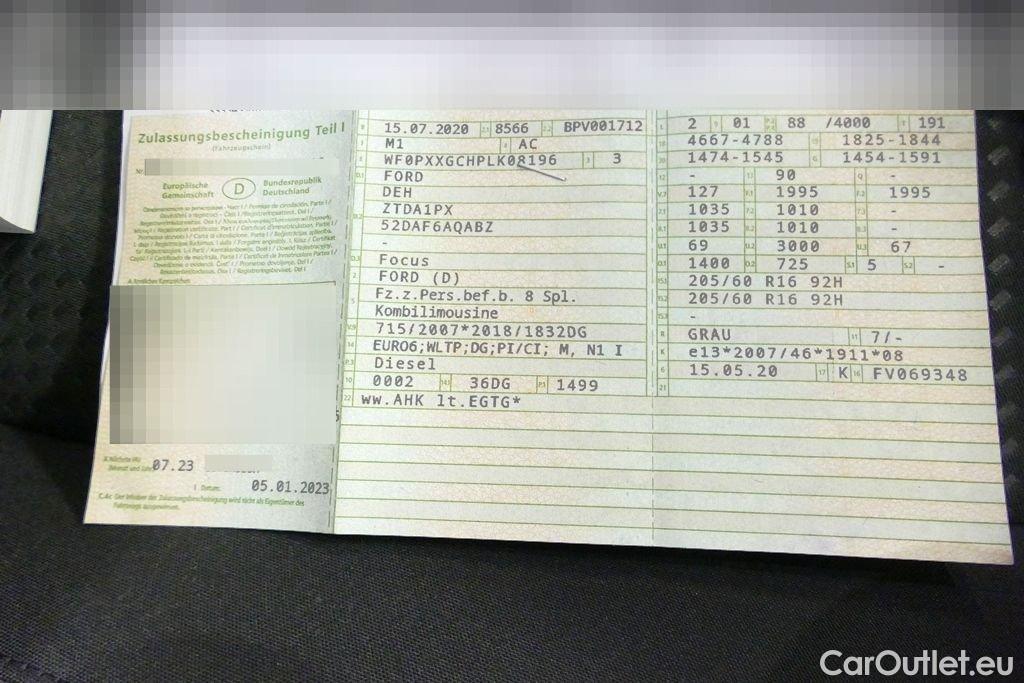 Zulassungsbescheinigung Teil I
(Fahrzeugschein)
Nr.
Europäische Gemeinschaft
D
Bundesrepublik Deutschland
07.23
05.01.2023
C.4c Der Inhaber der Zulassungsbescheinigung wird nicht als Eigentümer des
Fahrzeugs ausgewiesen.
B 15.07.2020 2.1 8566 2.2 BPV001712
J M1 4 AC
E WF0PXXGCHPLK08196 3 3
D.1 FORD
DEH
D.2 ZTDA1PX
52DAF6AQABZ
-
D.3 Focus
2 FORD (D)
5 Fz.z.Pers.bef.b. 8 Spl.
Kombilimousine
V.9 715/2007*2018/1832DG
14 EURO6;WLTP;DG;PI/CI; M, N1 I
P.3 Diesel
10 0002 14.1 36DG P.1 1499
22 ww.AHK lt.EGTG*
L 2 9 01 P.2 88 /4000 T 191
18 4667-4788 19 1825-1844
20 1474-1545 G 1454-1591
12 - 13 90 Q -
V.7 127 F.1 1995 F.2 1995
7.1 1035 7.2 1010 7.3 -
8.1 1035 8.2 1010 8.3 -
U.1 69 U.2 3000 U.3 67
O.1 1400 O.2 725 S.1 5 S.2 -
15.1 205/60 R16 92H
15.2 205/60 R16 92H
15.3 -
R GRAU 11 7/-
K e13*2007/46*1911*08
6 15.05.20 17 K 16 FV069348
21
CarOutlet.eu